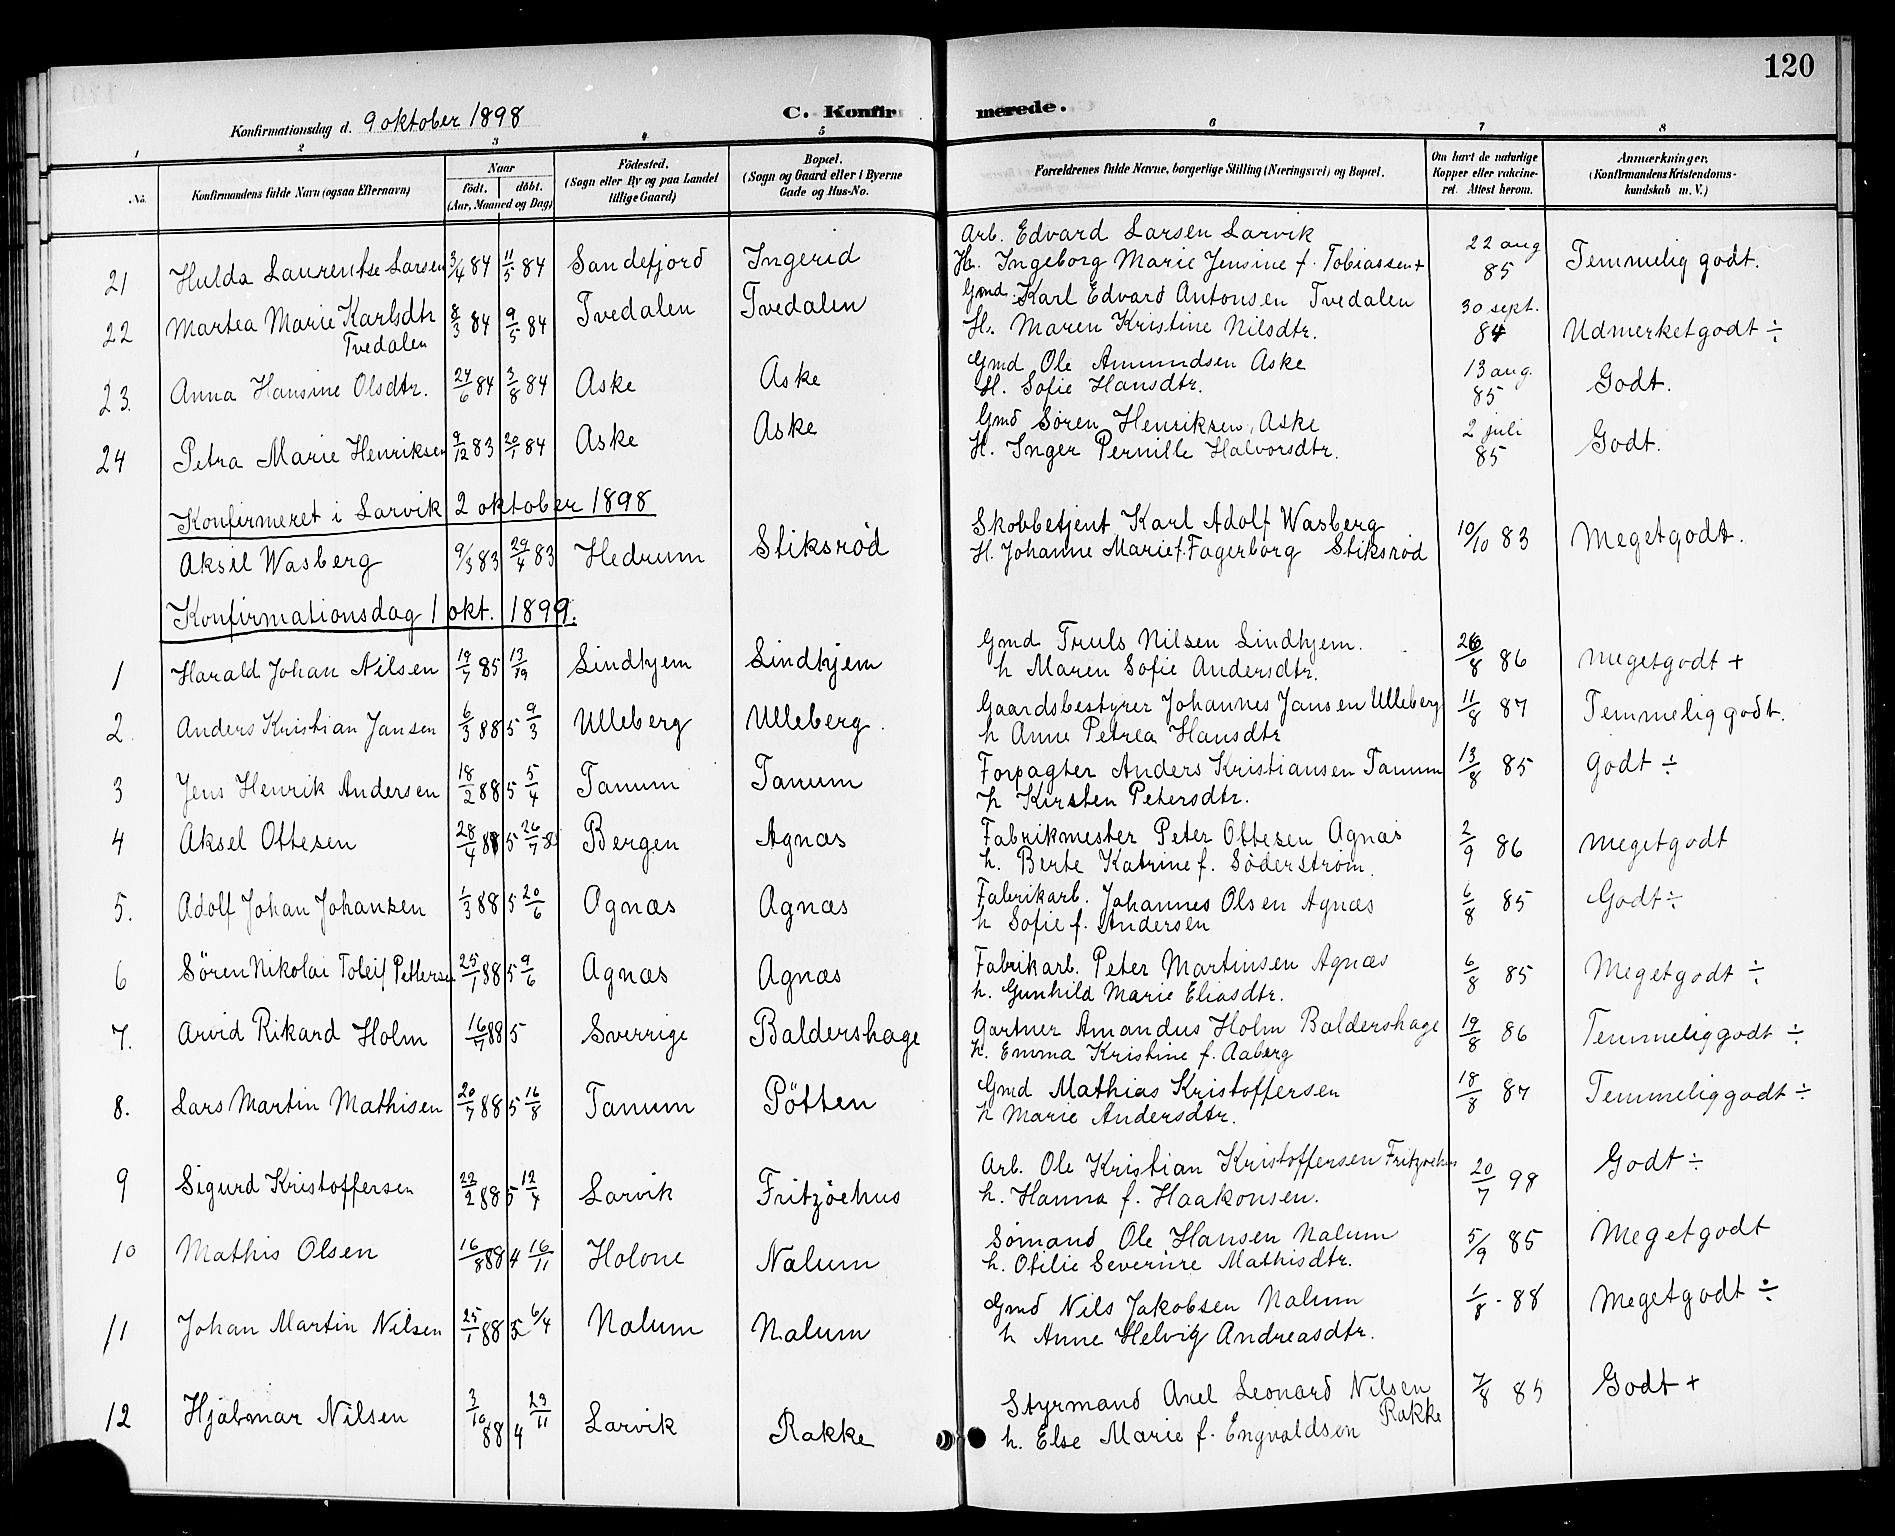 120
Konfirmationsdag d. 9 oktober 1898
C. Konfirmerede.
1 2 3 4 5 6 7 8
No.
Konfirmandens fulde Navn (ogsaa Efternavn)
Naar
født. døbt.
(Aar, Maaned og Dag)
Fødested.
(Sogn eller By og paa Landet
tillige Gaard)
Bopæl.
(Sogn og Gaard eller i Byerne
Gade og Hus-No.
Forældrenes fulde Navne, borgerlige Stilling (Næringsvei) og Bopæl.
Om havt de naturlige
Kopper eller vakcine-
ret. Attest herom.
Anmærkninger.
(Konfirmandens Kristendoms-
kundskab m. V.)
21 Hulda Laurentse Larsen 3/4 84 11/5 84 Sandefjord Ingerid
Arb. Edvard Larsen Larvik
H. Ingeborg Marie Jensine f. Tobiassen+
22 aug
85 Temmelig godt.
22 Martea Marie Karlsdtr
Tvedalen 8/3 84 9/5 84 Tvedalen Tvedalen
Gmd Karl Edvard Antonsen Tvedalen
H. Maren Kristine Nilsdtr.
30 sept.
84 Udmerketgodt ÷
23. Anna Hansine Olsdtr. 24/6 84 3/8 84 Aske Aske
Gmd Ole Amundsen Aske
H. Sofie Hansdtr.
13 aug.
85 Godt.
24 Petra Marie Henriksen 9/12 83 20/1 84 Aske Aske
Gmd Søren Henriksen, Aske
H. Inger Pernille Halvorsdtr.
2 juli
85 Godt.
Konfirmeret i Larvik 2 oktober 1898
Aksel Wasberg 9/3 83 29/4 83 Hedrum Stiksrød
Skobbetjent Karl Adolf Wasberg
H. Johanne Marie f. Fagerborg Stiksrød
10/10 83 Megetgodt.
Konfirmationsdag 1 okt. 1899.
1 Harald Johan Nilsen 19/7 85 13/19 Lindhjem Lindhjem
Gmd Truls Nilsen Lindhjem.
h Maren Sofie Andersdtr.
26/8 86 Megetgodt +
2. Anders Kristian Jansen 6/3 885 9/3 Ulleberg Ulleberg.
Gaardsbestyrer Johannes Jansen Ulleberg
h Anne Petrea Hansdtr
11/8 87 Temmelig godt.
3 Jens Henrik Andersen 18/2 885 5/4 Tanum Tanum
Forpagter Anders Kristiansen Tanum
h Kirsten Petersdtr.
13/8 85 Godt ÷
4 Aksel Ottesen 28/4 885 26/7 Bergen Agnæs
Fabrikmester Peter Ottesen Agnæs
h. Berte Katrine f. Söderström.
2/9 86 Megetgodt
5. Adolf Johan Johansen 1/3 885 20/6 Agnæs Agnæs
Fabrikarb. Johannes Olsen Agnæs
h Sofie f. Andersen
6/8 85 Godt ÷
6 Søren Nikolai Toleif Pettersen 25/1 885 9/6 Agnæs Agnæs
Fabrikarb. Peter Martinsen Agnæs
h. Gunhild Marie Eliasdtr.
6/8 85 Megetgodt ÷
7. Arvid Rikard Holm 16/7 885 Sverrige Baldershage
Gartner Amandus Holm Baldershage
h. Emma Kristine f. Aaberg
19/8 86 Temmeliggodt ÷
8. Lars Martin Mathisen 20/7 885 16/8 Tanum Pötten
Gmd Mathias Kristoffersen
h Marie Andersdtr.
18/8 87 Temmeliggodt ÷
9 Sigurd Kristoffersen 22/2 885 12/4 Larvik Fritzöehus
Arb. Ole Kristian Kristoffersen Fritzöehus
h. Hanna f. Haakonsen.
20/7 98 Godt ÷
10 Mathis Olsen 16/8 884 16/11 Holone Nalum
Sømand Ole Hansen Nalum
h. Otilie Severine Mathisdtr.
5/9 85 Megetgodt
11 Johan Martin Nilsen 25/1 885 6/4 Nalum Nalum
Gmd Nils Jakobsen Nalum
h Anne Helvig Andreasdtr.
1/8 - 88 Megetgodt ÷
12 Hjalmar Nilsen 3/10 884 29/11 Larvik Rakke
Styrmand Axel Leonard Nilsen
Rakke
h. Else Marie f. Engvaldsen
7/8 85 Godt +